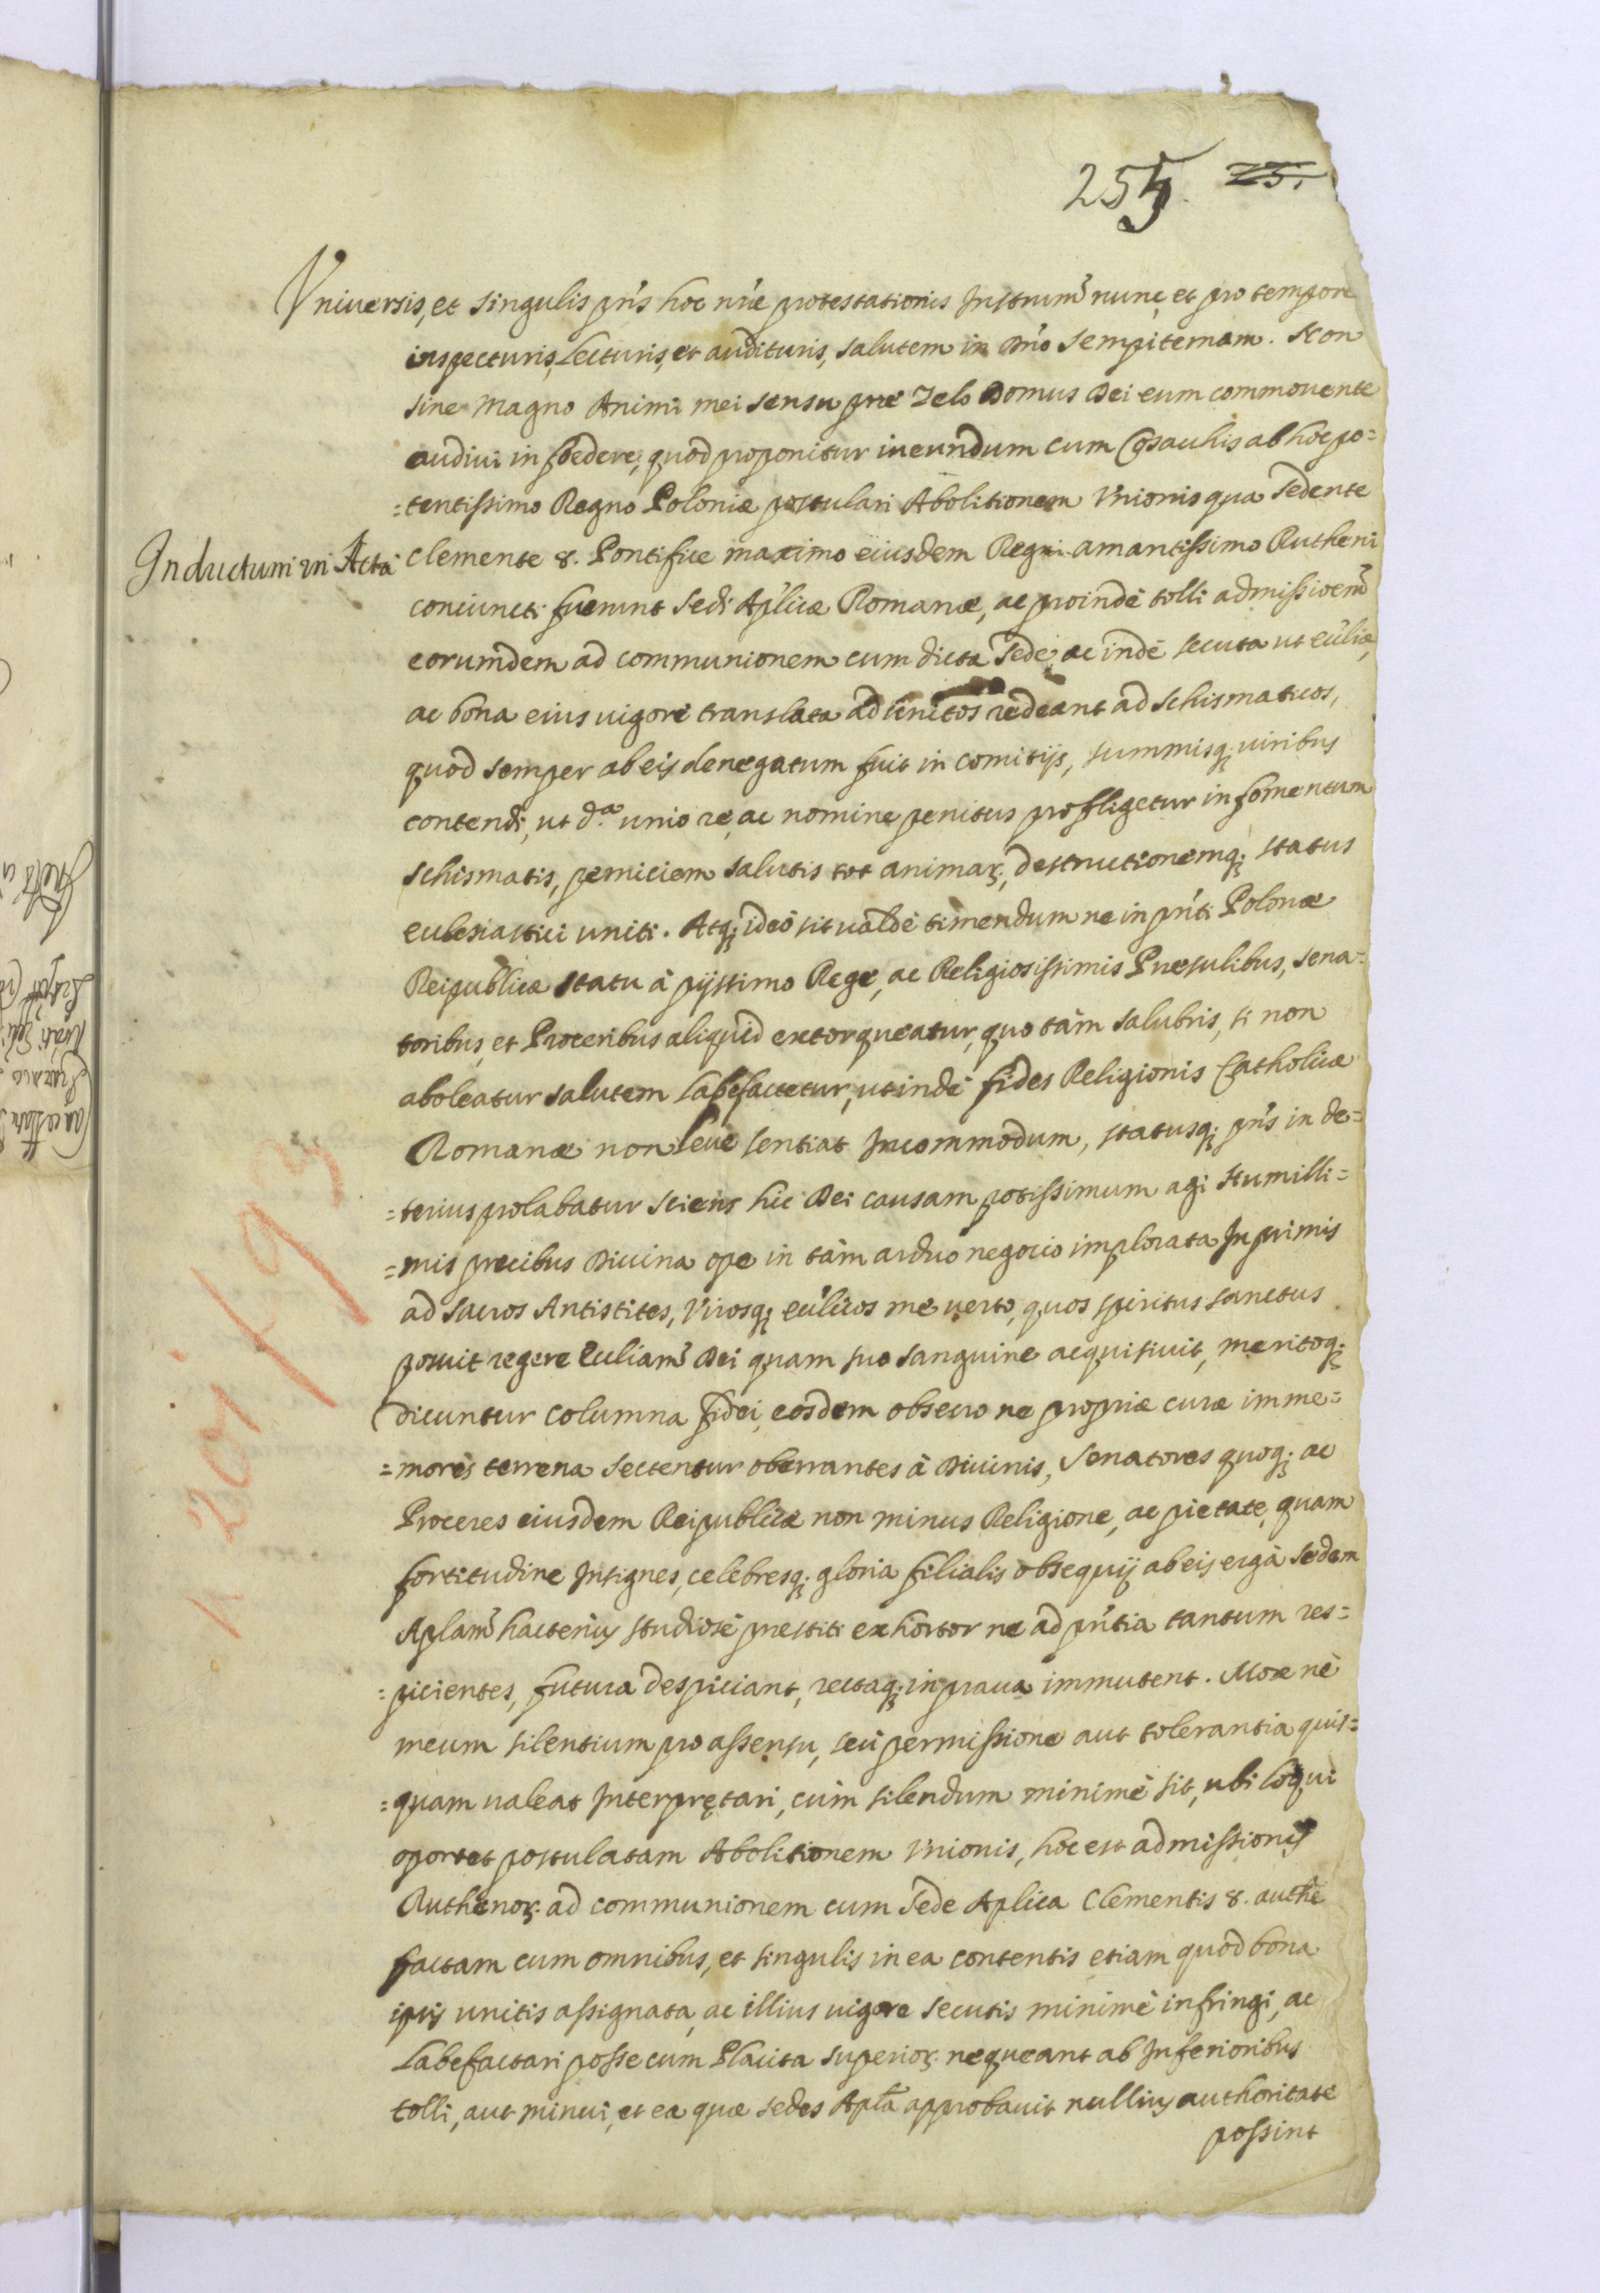 255. 25.
Vniversis, et singulis pñs hoc nr̃e protestationis Instrum̃ nunc, et pro tempore
inspecturis, Lecturis, et audituris, salutem in Dño sempiternam. Non
sine magno Animi mei sensu præ Zelo Domus Dei eum commouente
audiui in foedere, quod proponitur ineundum cum Cosauhis ab hoc po=
=tentissimo Regno Poloniæ postulari Abolitionem Vnionis qua Sedente
Inductum in Acta
Clemente 8. Pontifice maximo eiusdem Regni amantissimo Rutheni
coniuncti fuerunt Sedi Apl̃icæ Romanæ, ac proindè tolli admissioem̃
eorumdem ad communionem cum dicta Sede, ac indè secuta ut eccl̃iæ,
ac bona eius uigore translata ad Unitos redeant ad Schismaticos,
quod semper ab eis denegatum fuit in comitijs, summisq; uiribus
contendi, ut d.ª unio re, ac nomine penitus profligetur in fomentum
schismatis, perniciem salutis tot animar;, destructionemq; status
ecclesiastici uniti. Atq; ideò sit ualdè timendum ne in pñti Polonæ
Reipublicæ statu à pijssimo Rege, ac Religiosissimis Præsulibus, sena=
toribus, et Proceribus aliquid extorqueatur, quo tàm salubris, si non
aboleatur saltem Labefactetur, ut indè fides Religionis Catholicæ
Romanæ non leue sentiat Incommodum, statusq; pñs in de=
=terius prolabatur sciens hic Dei causam potissimum agi Humilli=
=mis precibus Diuina ope in tàm arduo negocio implorata In primis
ad sacros Antistites, Virosq; eccl̃icos me uerto, quos spiritus sanctus
posuit regere Eccliam̃ Dei quam suo sanguine acquisiuit, meritoq;
dicuntur columna fidei, eosdem obsecro ne propriæ curæ imme=
=mores terrena sectentur oberrantes à Diuinis, Senatores quoq; ac
Proceres eiusdem Reipublicæ non minus Religione, ac pietate, quam
fortitudine Insignes, celebresq; gloria filialis obsequij ab eis ergà sedem
Aplam̃ hactenus studiosè præstiti exhortor ne ad pñtia tantum res=
=picientes, futura despiciant, rectaq; in praua immutent. Mox nè
meum silentium pro assensu, seu permissione aut tolerantia quis=
=quam ualeat Interprętari, cùm silendum minimè sit, ubi loqui
oportet postulatam Abolitionem Vnionis, hoc est admissionis
Ruthenor; ad communionem cum Sede Aplica Clementis 8. authẽ
factam cum omnibus, et singulis in ea contentis etiam quod bona
ipsis unitis assignata, ac illius uigore secutis minimè infringi, ac
Labefactari posse cum Placita superior; nequeant ab Inferioribus
tolli, aut minui, et ea quæ sedes Apl̃a approbauit nullius authoritate
possint